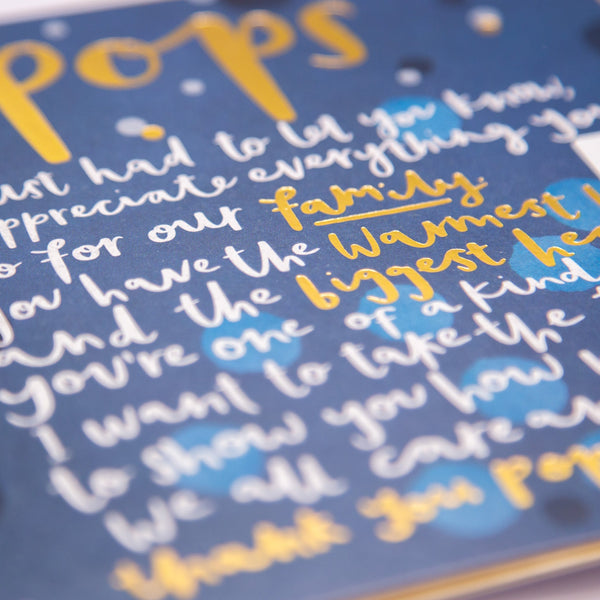 pops
just had to let you know,
appreciate everything you
do for our family
you have the warmest
and the biggest
you're one of a kind
I want to take the
to show you how
we all care
thank you pop